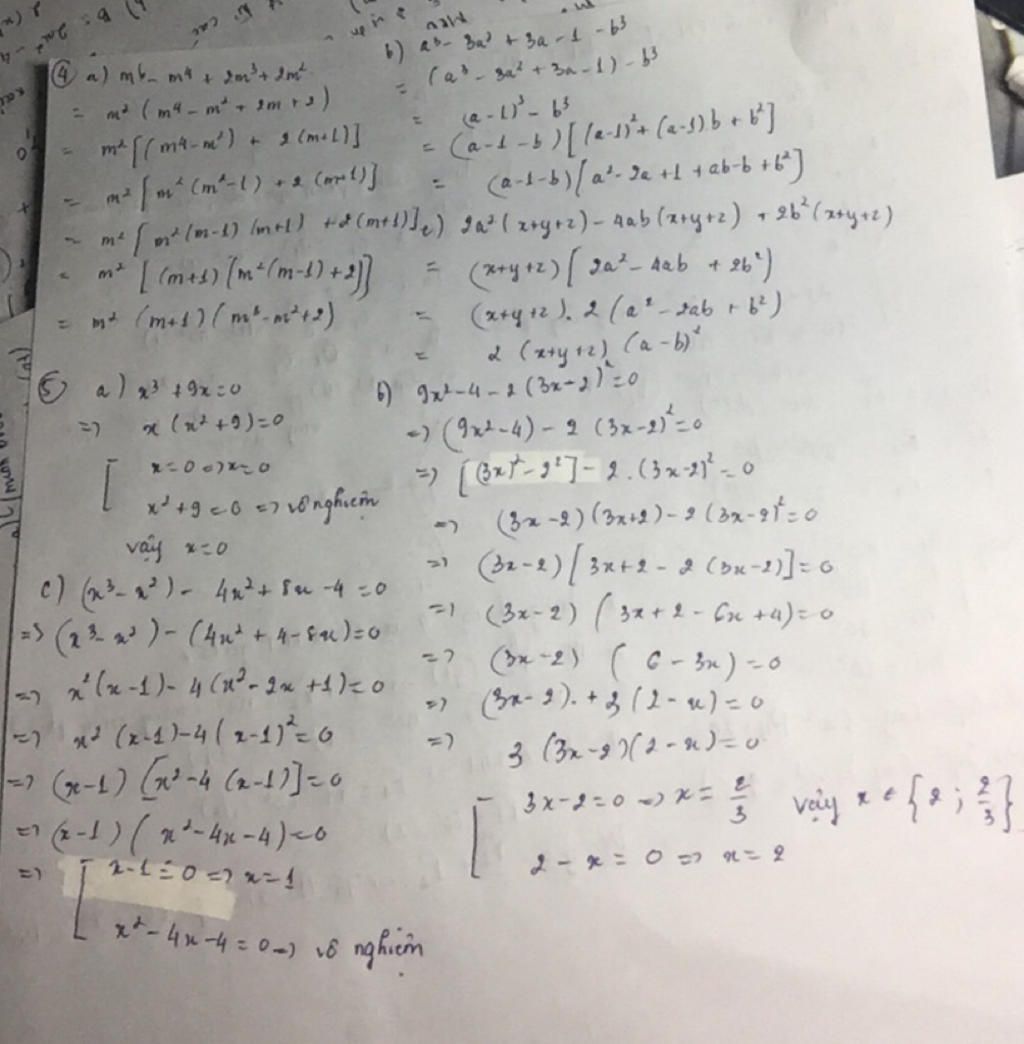 ④ a) m6 - m4 + 2m³ + 2m²
= m² (m4 - m² + 2m + 2)
= m² [(m4 - m²) + 2 (m+1)]
= m² [m² (m²-1) + 2 (m+1)]
= m² [m² (m-1) (m+1) + 2 (m+1)]
= m² [(m+1) [m² (m-1) + 2]]
= m² (m+1) (m³ - m² + 2)
b) a³ - 3a² + 3a - 1 - b³
= (a³ - 3a² + 3a - 1) - b³
= (a-1)³ - b³
= (a-1-b) [(a-1)² + (a-1).b + b²]
= (a-1-b) [a² - 2a + 1 + ab - b + b²]
c) 2a² (x+y+z) - 4ab (x+y+z) + 2b² (x+y+z)
= (x+y+z) [2a² - 4ab + 2b²)
= (x+y+z). 2 (a² - 2ab + b²)
= 2 (x+y+z) (a-b)²
⑤ a) x³ + 9x = 0
=> x (x² + 9) = 0
[ x = 0 => x = 0
x² + 9 = 0 => vô nghiệm
vậy x = 0
b) 9x² - 4 - 2 (3x-2)² = 0
=> (9x² - 4) - 2 (3x-2)² = 0
=> [(3x)² - 2²] - 2. (3x-2)² = 0
=> (3x-2) (3x+2) - 2 (3x-2)² = 0
=> (3x-2) [3x + 2 - 2 (3x-2)] = 0
=> (3x-2) (3x + 2 - 6x + 4) = 0
=> (3x-2) (6 - 3x) = 0
=> (3x-2). + 3 (2-x) = 0
=> 3 (3x-2) (2-x) = 0
[ 3x - 2 = 0 => x = 2/3 vậy x ∈ {2 ; 2/3}
2 - x = 0 => x = 2
c) (x³ - x²) - 4x² + 8x - 4 = 0
=> (x³ - x²) - (4x² + 4 - 8x) = 0
=> x² (x-1) - 4 (x² - 2x + 1) = 0
=> x² (x-1) - 4 (x-1)² = 0
=> (x-1) [x² - 4 (x-1)] = 0
=> (x-1) (x² - 4x - 4) = 0
=> [ x - 1 = 0 => x = 1
x² - 4x - 4 = 0 => vô nghiệm